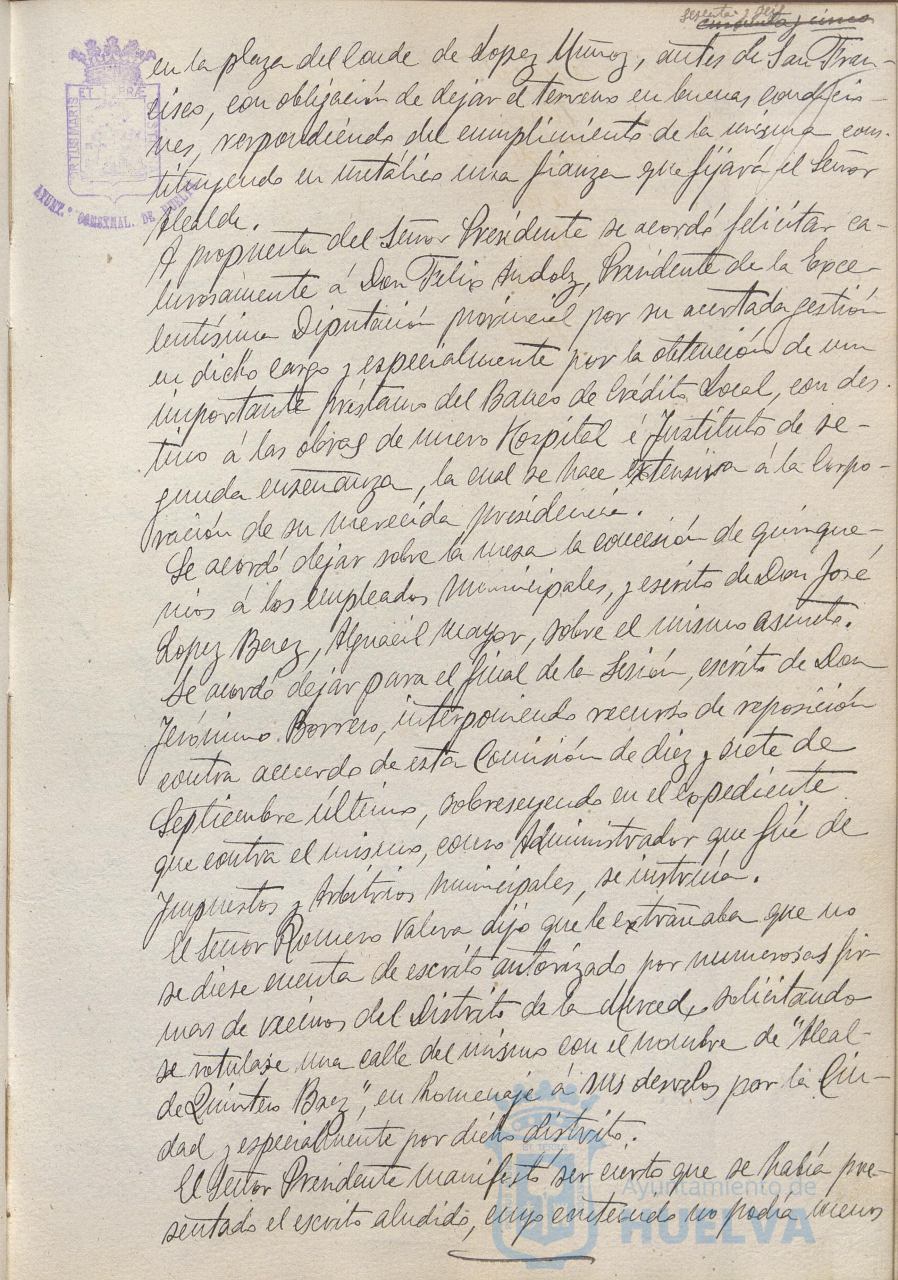 Sesenta y seis
cincuenta y cinco
en la plaza del Conde de Lopez Muñoz, antes de San Fran-
cisco, con obligación de dejar el terreno en buenas condicio-
nes, respondiendo del cumplimiento de la misma cons-
tituyendo en metálico una fianza que fijará el Señor
Alcalde.
A propuesta del Señor Presidente se acordó felicitar ca-
lurosamente á Don Felix Andolz, Presidente de la Exce-
lentísima Diputación provincial por su acertada gestión
en dicho cargo y especialmente por la obtención de un
importante préstamo del Banco de Crédito Local, con des-
tino á las obras de nuevo Hospital é Instituto de se-
gunda enseñanza, la cual se hace extensiva á la Corpo-
ración de su merecida presidencia.
Se acordó dejar sobre la mesa la concesión de quinque-
nios á los empleados municipales, y escrito de Don José
Lopez Berez, Alguacil mayor, sobre el mismo asunto.
Se acordó dejar para el final de la Sesión, escrito de Don
Jerónimo Borrero, interponiendo recurso de reposición
contra acuerdo de esta Comisión de diez y siete de
Septiembre último, sobreseyendo en el expediente
que contra el mismo, como Administrador que fué de
Impuestos y Arbitrios municipales, se instruía.
El Señor Romero Valera dijo que le extrañaba que no
se diese cuenta de escrito autorizado por numerosas fir-
mas de vecinos del Distrito de la Merced, solicitando
se rotulase una calle del mismo con el nombre de "Alcal-
de Quintero Baez", en homenaje á sus desvelos por la Ciu-
dad y especialmente por dicho distrito.
El Señor Presidente manifestó ser cierto que se había pre-
sentado el escrito aludido, cuyo contenido no podía menos
AYUNT.º CONSTNAL. DE HUELVA
Ayuntamiento de
HUELVA